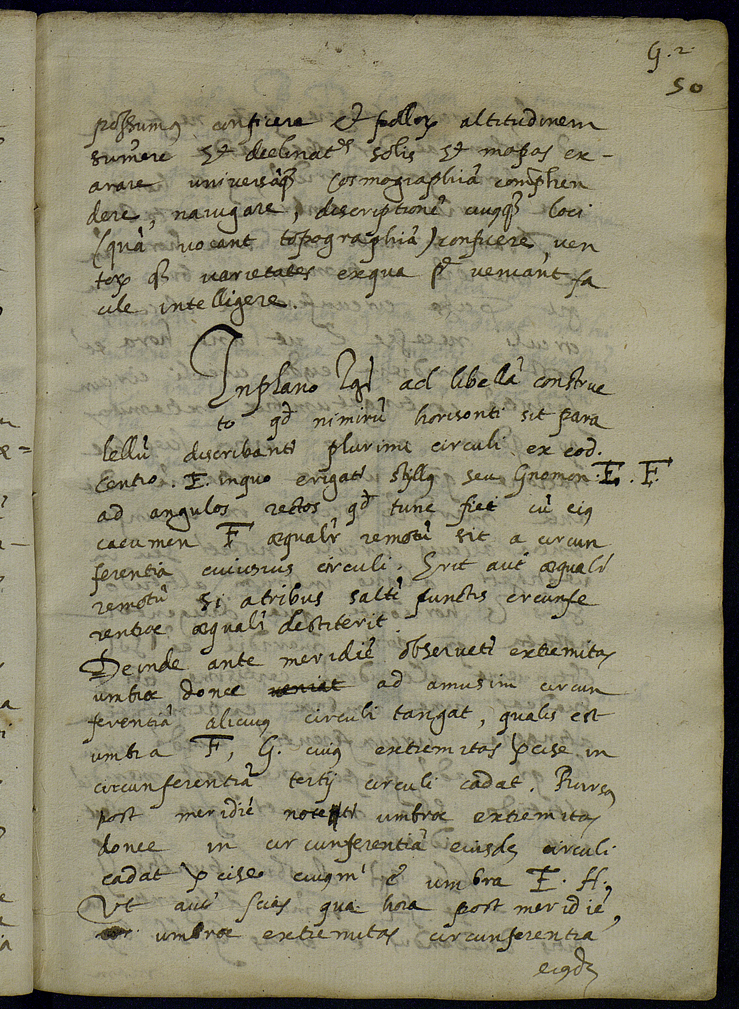 G. 2.
50
possumꝰ conficere et stellaꝝ altitudinem
sumere et declinat͂es solis et mapas ex-
arare universāqꝫ cosmographiā compħen
dere, navigare, descriptionē cuiusqꝫ loci
(quā vocant topographiā) conficere, ven
toꝝ qꝫ varietates ex qua ꝑ veniant fa
cile intelligere.
In plano Igr̄ ad libellā construc
to qđ nimirū horisonti sit para
llelū describantr̄ plurimi circuli ex eod.
centro. E. in quo erigatr̄ stylꝰ seu Gnomon. E. F.
ad angulos rectos qđ tunc fiet cū eiꝰ
cacumen F æqualr̄ remotū sit a circun
ferentia cuiusvis circuli. Erit aut̄ æqualr̄
remotū si a tribus saltē punctis circunfe
rentiæ æqualr̄ destiterit.
Deinde ante meridiē observetr̄ extremitas
umbræ donec veniat ad amusim circun
ferentiā alicuiꝰ circuli tangat, qualis est
umbra F, G. cuiꝰ extremitas ꝑcise in
circunferentiā tertij circuli cadat. Rursꝰ
post meridiē notetr̄ umbræ extremitas
donec in circunferentiā eiusdē circuli
cadat ꝑcise cuiꝰmⁱ ē umbra E. H,
Vt aut̄ scias qua hora post meridiē,
umbræ extremitas circunferentiā
eiꝰdē